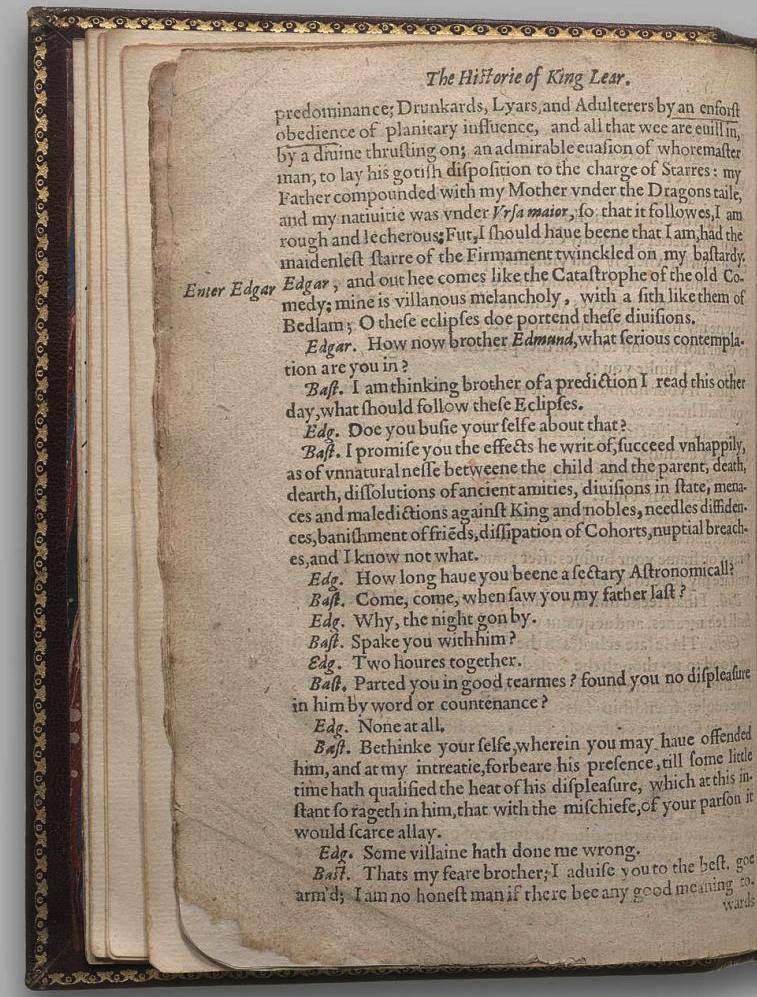 The Historie of King Lear.
predominance; Drunkards, Lyars, and Adulterers by an enforst
obedience of planitary influence, and all that wee are euill in,
by a diuine thrusting on; an admirable euasion of whoremaster
man, to lay his gotish disposition to the charge of Starres: my
Father compounded with my Mother vnder the Dragons taile,
and my natiuitie was vnder Vrsa maior, so that it followes, I am
rough and lecherous; Fut, I should haue beene that I am, had the
maidenlest starre of the Firmament twinckled on my bastardy,
Enter Edgar Edgar, and out hee comes like the Catastrophe of the old Co-
medy; mine is villanous melancholy, with a sith like them of
Bedlam; O these eclipses doe portend these diuisions.
Edgar. How now brother Edmund, what serious contempla-
tion are you in?
Bast. I am thinking brother of a prediction I read this other
day, what should follow these Eclipses.
Edg. Doe you busie your selfe about that?
Bast. I promise you the effects he writ of, succeed vnhappily,
as of vnnaturalnesse betweene the child and the parent, death,
dearth, dissolutions of ancient amities, diuisions in state, mena-
ces and maledictions against King and nobles, needles diffiden-
ces, banishment of friẽds, dissipation of Cohorts, nuptial breach-
es, and I know not what.
Edg. How long haue you beene a sectary Astronomicall?
Bast. Come, come, when saw you my father last?
Edg. Why, the night gon by.
Bast. Spake you with him?
Edg. Two houres together.
Bast. Parted you in good tearmes? found you no displeasure
in him by word or countenance?
Edg. None at all.
Bast. Bethinke your selfe, wherein you may haue offended
him, and at my intreatie, forbeare his presence, till some little
time hath qualified the heat of his displeasure, which at this in-
stant so rageth in him, that with the mischiefe, of your parson it
would scarce allay.
Edg. Some villaine hath done me wrong.
Bast. Thats my feare brother; I aduise you to the best, goe
arm'd; I am no honest man if there bee any good meaning to-
wards